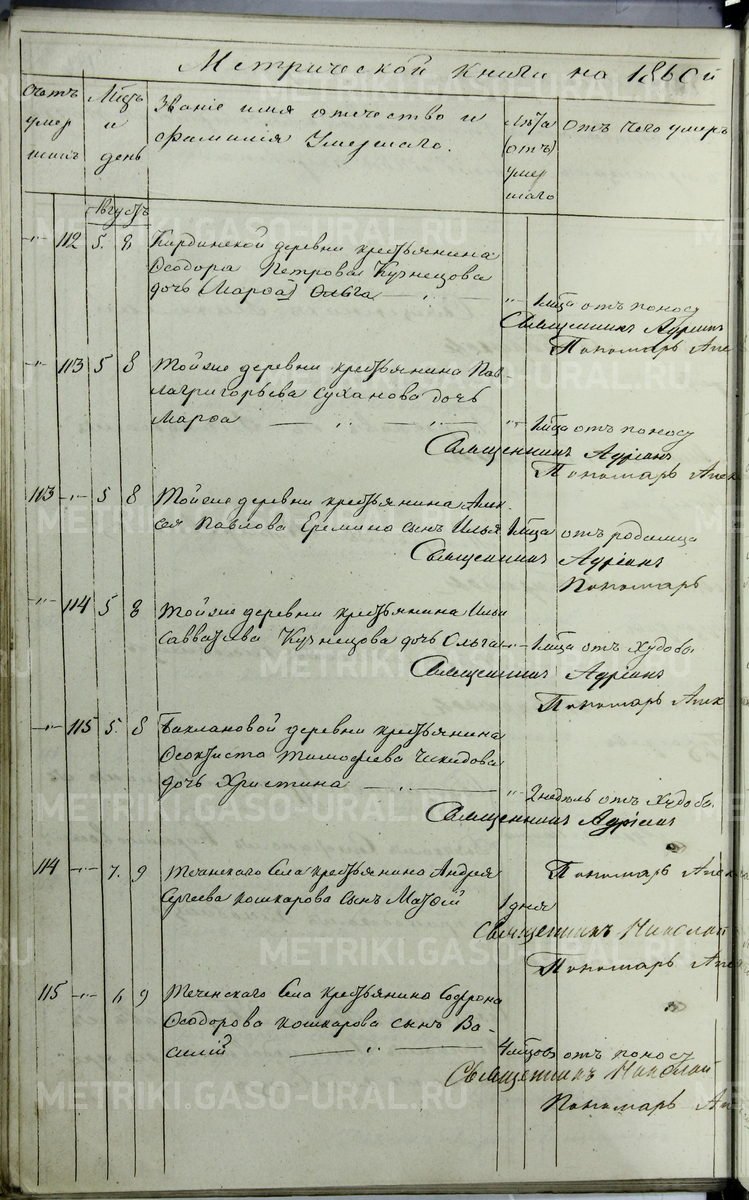 Метрической книги на 1860й
Счетъ умер шихъ
Мѣсць и день
Званіе имя отечество и фамилія Умершаго.
Лѣта (отъ) умер шаго
Отъ Чего умеръ
Августъ
112 5. 8 Кирдинской деревни крестьянина
Ѳеодора Петрова Кузнецова
дочь (Марѳа) Ольга — „ — „ 1 мѣца отъ поносу
Священникъ Адріанъ
Пономарь Алек
113 5 8 Тойже деревни крестьянина Пав-
ла Григорьева Суханова дочь
Марѳа — „ — „ 1 мѣца отъ поносу
Священникъ Адріанъ
Пономарь Алек
113 5 8 Тойже деревни крестьянина Алек
сѣя Павлова Еремина сынъ Илья 1 мѣца отъ родимца
Священникъ Адріанъ
Пономарь
114 5 8 Тойже деревни крестьянина Ильи
Савватѣева Кузнецова дочь Ольга „ 1 мѣца отъ худобы
Священникъ Адріанъ
Пономарь Алек
115 5. 8 Баклановой деревни крестьянина
Ѳеоктиста Тимоѳеева
дочь Христина — „ 2 недѣль отъ Худобы
Священникъ Адріанъ
Пономарь Алек
114 7. 9 Теченскаго Села крестьянина Андрея
Сергѣева Кошкарова сынъ Матѳій 1 дня
Священникъ Николай
Пономарь Алек
115 6 9 Теченскаго Села крестьянина Софрона
Ѳеодорова Кошкарова сынъ Ва-
силій — „ — 4 мѣцовъ отъ поносу
Священникъ Николай
Пономарь Ал
METRIKI.GASO-URAL.RU